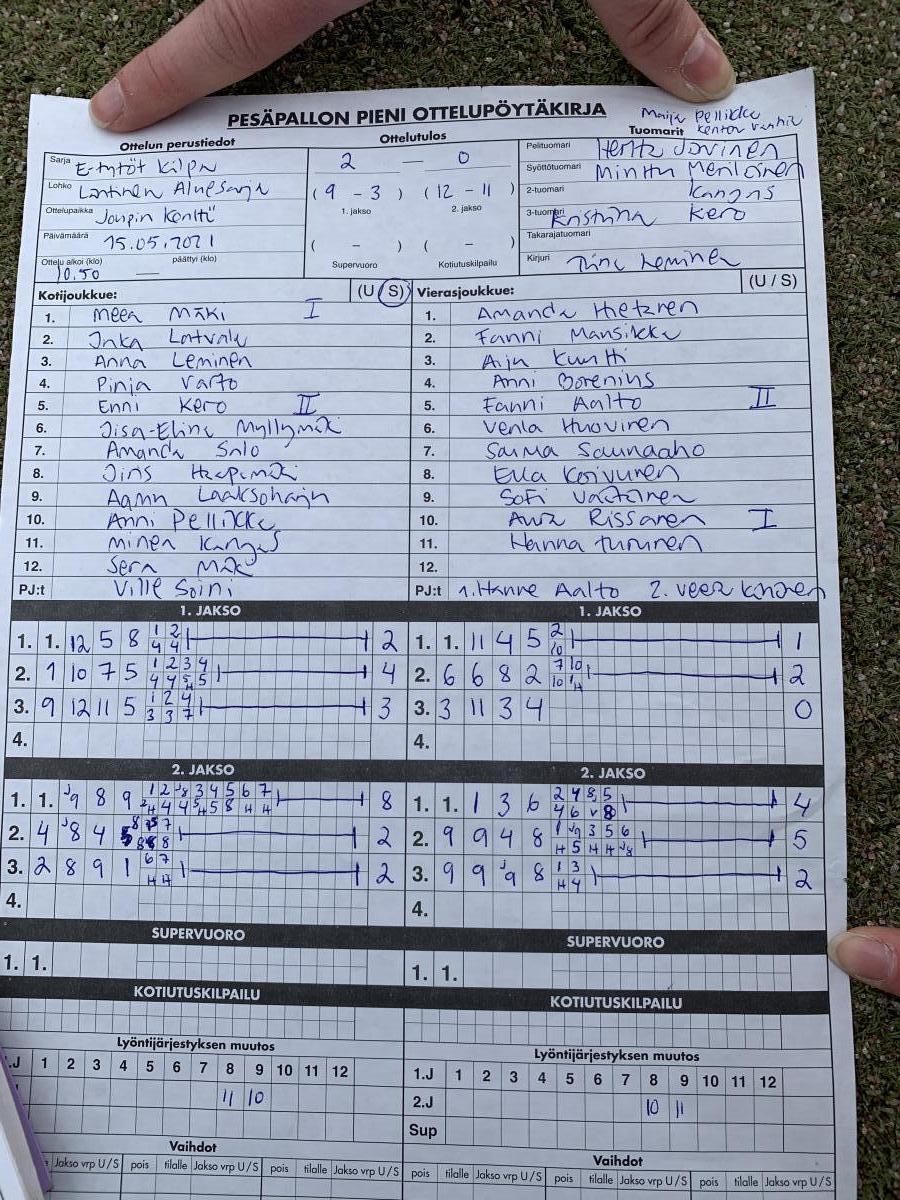 PESÄPALLON PIENI OTTELUPÖYTÄKIRJA
Maija Pellikka
Ottelun perustiedot
Ottelutulos
Tuomarit
Sarja E-tytöt kilpa
2 — 0
Pelituomari
Lohko Läntinen Aluesarja
( 9 - 3 ) ( 12 - 11 )
1. jakso 2. jakso
Syöttötuomari Minttu Meriläinen
Ottelupaikka Joupin kenttä
2-tuomari Kangas
3-tuomari Kristiina Kero
Päivämäärä 15.05.2021
( - ) ( - )
Takarajatuomari
Ottelu alkoi (klo) 10.50 — päättyi (klo)
Supervuoro Kotiutuskilpailu
Kirjuri Leminen
Kotijoukkue: (U / S)
1. Meea Mäki I
2. Inka Latvala
3. Anna Leminen
4. Pinja Varto
5. Enni Kero II
6. Iisa-Elina Myllymäki
7. Amanda Salo
8. Iiris Haapamäki
9. Laaksoharju
10. Anni Pellikka
11. Minea Kangas
12. Mäk
PJ:t Ville Soini
Vierasjoukkue: (U / S)
1. Amanda Hietanen
2. Fanni Mansikka
3. Aija Kuntti
4. Anni Borenius
5. Fanni Aalto II
6. Venla Huovinen
7. Saima Saunaaho
8. Ella Koivunen
9. Sofi
10. Rissanen I
11. Hanna Tururen
12.
PJ:t 1. Hanne Aalto 2. Veera
1. JAKSO
1. 1. 12 5 8 1 2 2
4 4
2. 1 10 7 5 1 2 3 4 4
4 4 5 5
H
3. 9 12 11 5 1 2 4 3
3 3 7
4.
1. JAKSO
1. 1. 11 4 5 2 1
10
2. 6 6 8 2 7 10 2
10 H
3. 3 11 3 4 0
4.
2. JAKSO
1. 1. J9 8 9 1 2 J8 3 4 5 6 7 8
H 4 4 5 5 8 H H
2. 4 J8 4 2
3. 2 8 9 1 6 7 2
H H
4.
2. JAKSO
1. 1. 1 3 6 2 4 8 5 4
4 6 V 8
2. 9 9 4 8 1 J9 3 5 6 5
H 5 H H J8
3. 9 9 J9 8 1 3 2
H 4
4.
SUPERVUORO
1. 1.
SUPERVUORO
1. 1.
KOTIUTUSKILPAILU
KOTIUTUSKILPAILU
Lyöntijärjestyksen muutos
.J 1 2 3 4 5 6 7 8 9 10 11 12
11 10
Lyöntijärjestyksen muutos
1.J 1 2 3 4 5 6 7 8 9 10 11 12
2.J 10 11
Sup
Vaihdot
Jakso vrp U/S pois tilalle Jakso vrp U/S pois tilalle Jakso vrp U/S
Vaihdot
pois tilalle Jakso vrp U/S pois tilalle Jakso vrp U/S pois tilalle Jakso vrp U/S